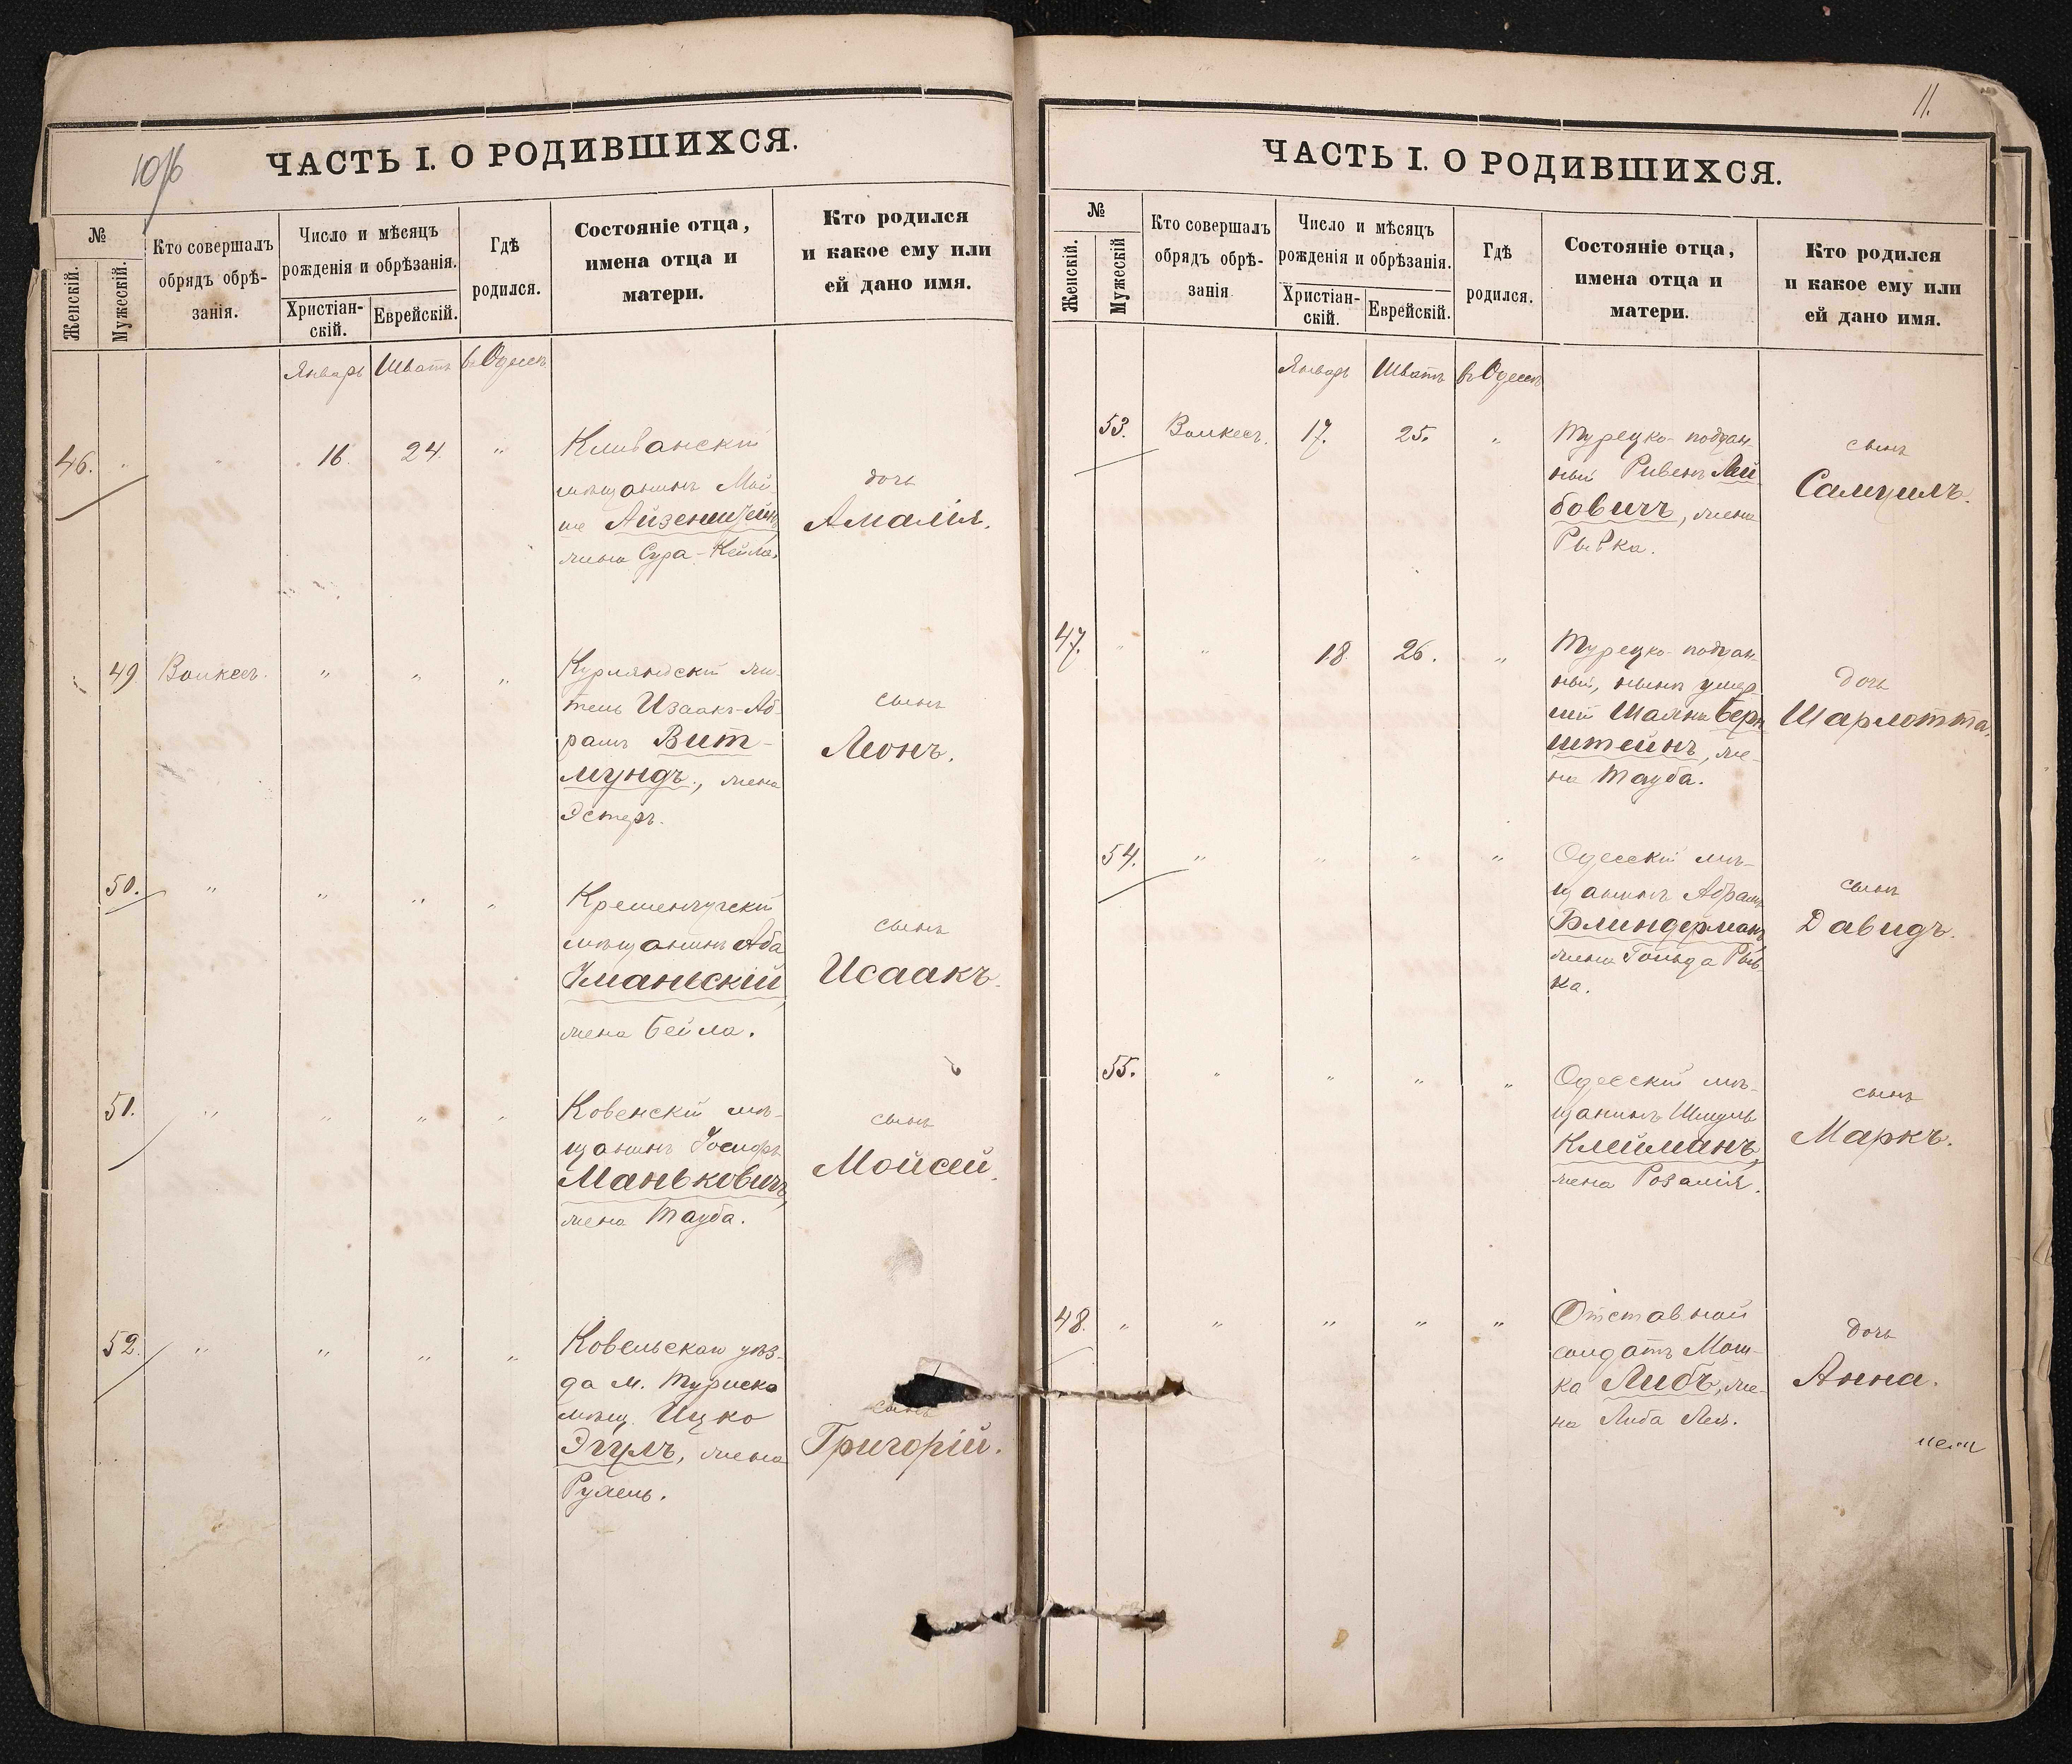 10/б
ЧАСТЬ I. О РОДИВШИХСЯ.
№
Женскій.
Мужескій.
Кто совершалъ
обрядъ обрѣ-
занія.
Число и мѣсяцъ
рожденія и обрѣзанія.
Христіан-
скій.
Еврейскій.
Гдѣ
родился.
Состояніе отца,
имена отца и
матери.
Кто родился
и какое ему или
ей дано имя.
Январь Шватъ въ Одессѣ
46. " 16. 24. "
мѣщанинъ Мой-
ше Айзенштейнъ,
жена Сура-Кейла.
дочь
Амалія.
49. " " "
Курляндскій жи-
тель Изаакъ-Аб-
рамъ Вит-
мундъ, жена
Эстеръ.
сынъ
Леонъ.
50. " " " "
Кременчугскій
мѣщанинъ Аба
Уманскій,
жена Бейла.
сынъ
Исаакъ.
51. " " " "
Ковенскій мѣ-
щанинъ Іосифъ
Маньковичъ,
жена Тауба.
сынъ
Мойсей.
52. " " " "
Ковельскаго уѣз-
да м. Туриска
мѣщ. Ицко
Эгулъ, жена
Рухель.
сынъ
Григорій.
11.
ЧАСТЬ I. О РОДИВШИХСЯ.
№
Женскій.
Мужескій
Кто совершалъ
обрядъ обрѣ-
занія
Число и мѣсяцъ
рожденія и обрѣзанія.
Христіан-
скій.
Еврейскій.
Гдѣ
родился.
Состояніе отца,
имена отца и
матери.
Кто родился
и какое ему или
ей дано имя.
Январь Шватъ въ Одессѣ
53. 17. 25. "
Турецко-поддан-
ный Ривенъ Лей-
бовичъ, жена
Рывка.
сынъ
Самуилъ.
47. " " 18. 26. "
Турецко-поддан-
ный, нынѣ умер-
шій Шахна Берн-
штейнъ, же-
на Тауба.
дочь
Шарлотта.
54. " " " "
Одесскій мѣ-
щанинъ Абрамъ
Блиндерманъ,
жена Гольда Рыв-
ка.
сынъ
Давидъ.
55. " " " "
Одесскій мѣ-
щанинъ Шмуль
Клейманъ,
жена Розалія.
сынъ
Маркъ.
48. " " " " "
Отставной
солдатъ Мош-
ка Либъ, же-
на Либа Лея.
дочь
Анна.